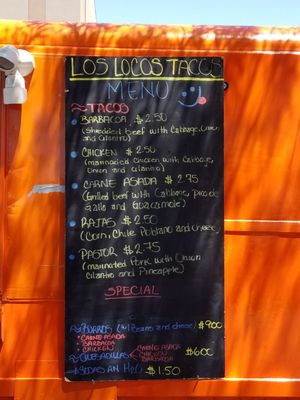 LOS LOCOS TACOS
MENU
TACOS
BARBACOA $2.50
(Shredded beef with Cabbage, Onion
and Cilantro)
CHICKEN $2.50
(marinaded Chicken with Cabbage,
Onion and Cilantro)
CARNE ASADA $2.75
(Grilled beef with Cabbage, pico de
gallo and Guacamole)
RAJAS $2.50
(Corn, Chile Poblano and cheese)
PASTOR $2.75
(marinated Pork with Onion
Cilantro and Pineapple)
SPECIAL
(w/ Beans and cheese) $9.00
CARNE ASADA
BARBACOA
CHICKEN
QUESADILLAS CARNE ASADA
CHICKEN
BARBACOA
$6.00
SODAS AN $1.50